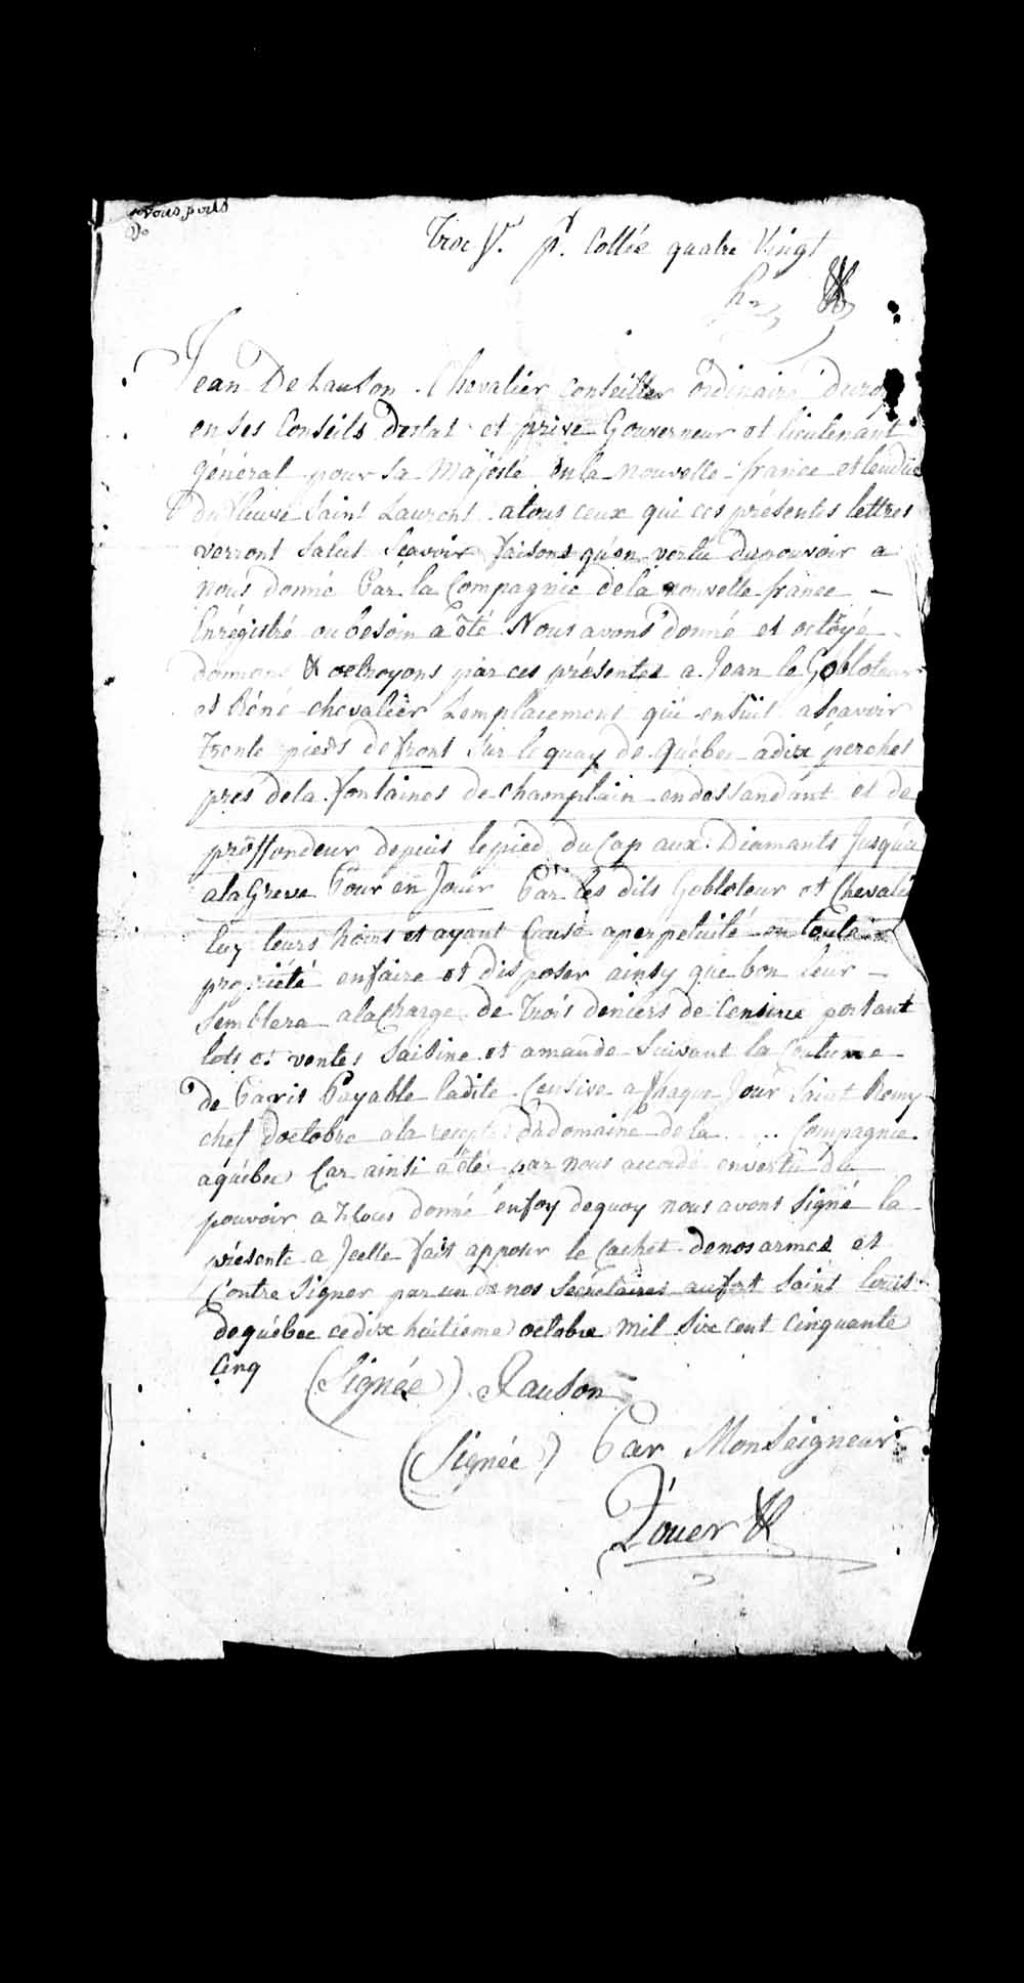 quatre Vingt
Jean De Lauson Chevalier Conseiller ordinaire duroy
en ses Conseils destat et privé Gouverneur et lieutenant
général pour sa Majesté enla nouvelle france et lendue
du fleuve Saint Laurent atous ceux qui ces présentes lettres
verront Salut Scavoir faisons qu'en vertu dupouvoir a
nous donné Par la Compagnie dela nouvelle france
Enrégistré oubesoin a été Nous avons donné et octoyé
donnons & octroyons par ces présentes a Jean le Gobloteur
et Réné chevalier Lemplacement qui ensuit ascavoir
Trente pieds de front Sur le quay de Québec adix perches
prés dela fontaines de champlain endessandant et de
proffondeur depuis lepied du Cap aux Diamants Jusqu'a
ala Greve Pour en Jouir Par les dits Gobloteur et Chevalié
Luy leurs hoirs et ayant Cause aperpetuité en toute
propriété enfaire et disposer ainsy que bon leur
Semblera ala Charge de Trois deniers de Censive portant
lots et ventes Saisine et amande Suivant la Coutume
de Paris Payable ladite Censive a Chaque Jour Saint Remy
chef doctobre ala recepte du domaine dela .... Compagnie
aquébec Car ainsi a été par nous accordé envertu du
pouvoir a Nous donné enfoy dequoy nous avons Signé la
présente a Jcelle fait apposer le Cachet denos armes et
Contre Signer par un de nos Sécrétaires aufort Saint louis
dequébec cedix huitieme octobre mil Six cent Cinquante
Cinq
(Signée) Lauson
(Signée) Par MonSeigneur
Roüer